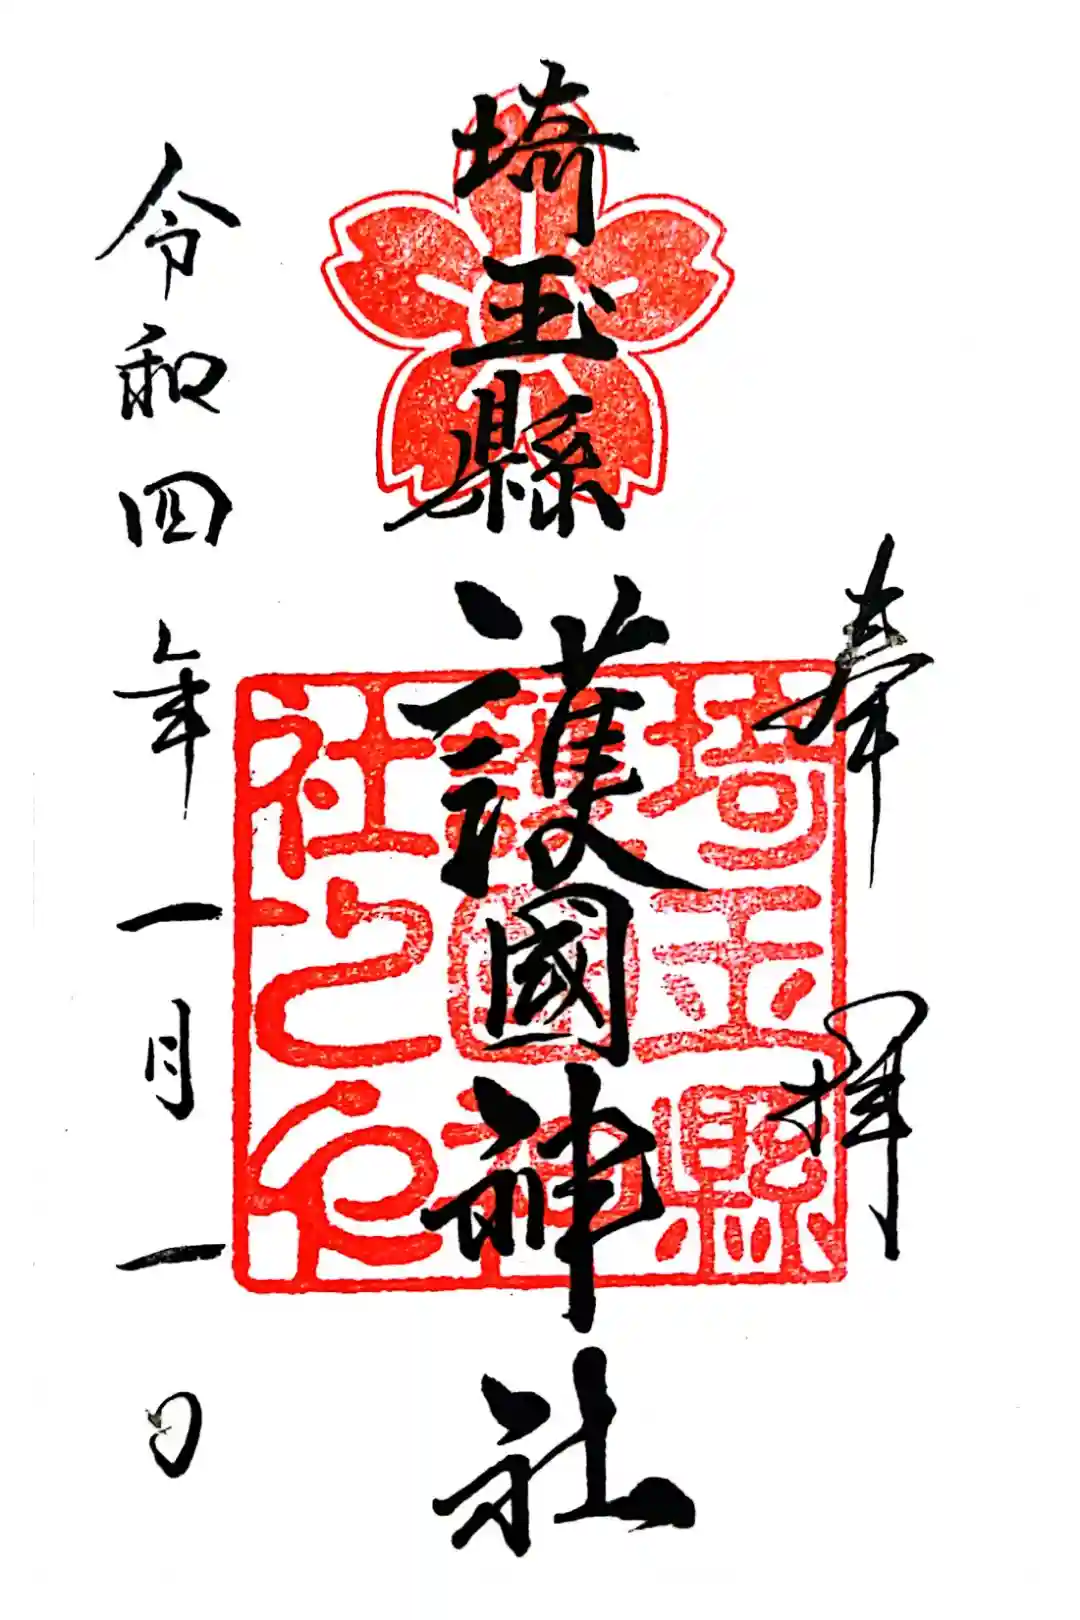 奉拝
埼玉縣護國神社
埼玉縣
護國神
社之印
令和四年一月一日